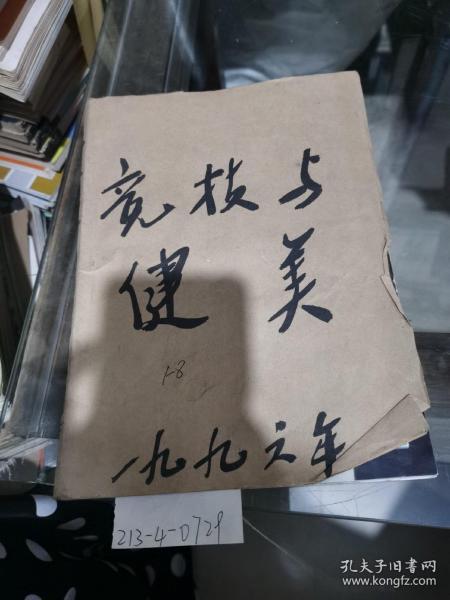 竞技与
健美
1-8
一九九六年
213-4-0729
孔夫子旧书网
www.kongfz.com